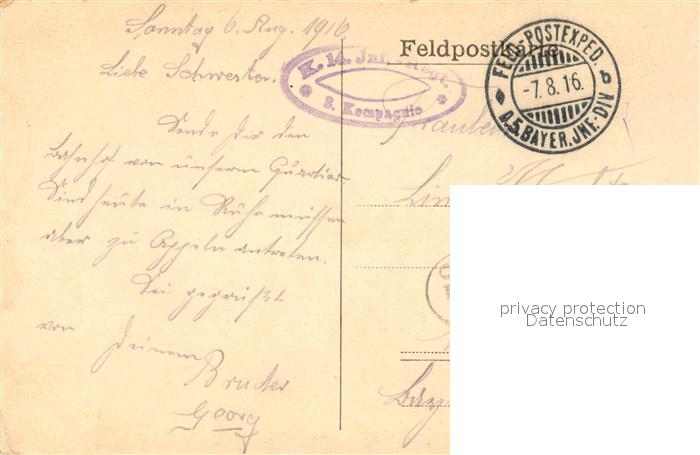 Sonntag 6. Aug. 1916
Liebe Schwester.
Sende dir den
Bahnhof von unserm Quartier.
Sind heute in Ruhe müssen
aber zu Appeln antreten.
Sei gegrüßt
von
Deinem
Bruder
Georg
Feldpostkarte
K. 14. Inf.-Regt.
8. Kompagnie
FELD-POSTEXPED.
-7.8.16.
b
D. 5. BAYER. JNF.-DIV
Fräulein
privacy protection
Datenschutz